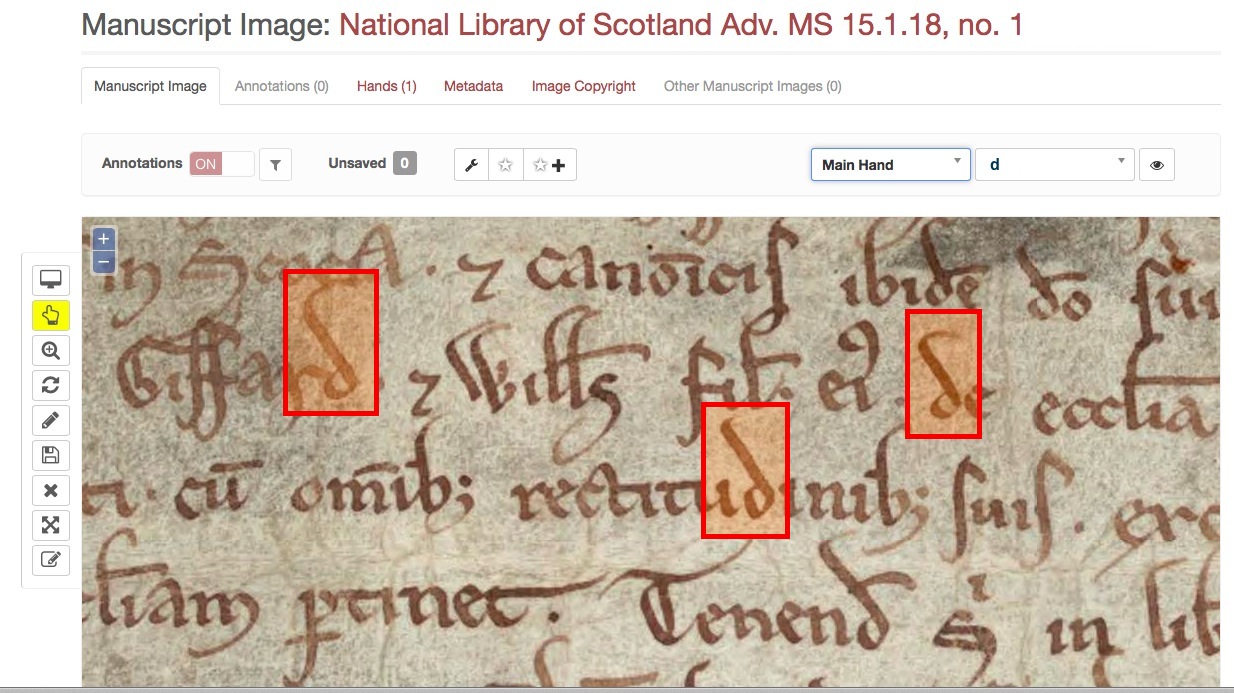 Manuscript Image: National Library of Scotland Adv. MS 15.1.18, no. 1
Manuscript Image Annotations (0) Hands (1) Metadata Image Copyright Other Manuscript Images (0)
Annotations ON Unsaved 0 Main Hand d
+
−
in . ⁊ canōicis ibidē dō
Giffard. ⁊ Willꝭs fił. ei⁹ de ecclia
ti. cū om̄ib; rectitudinib; suis.
ꝑtinet. Tenend in lib